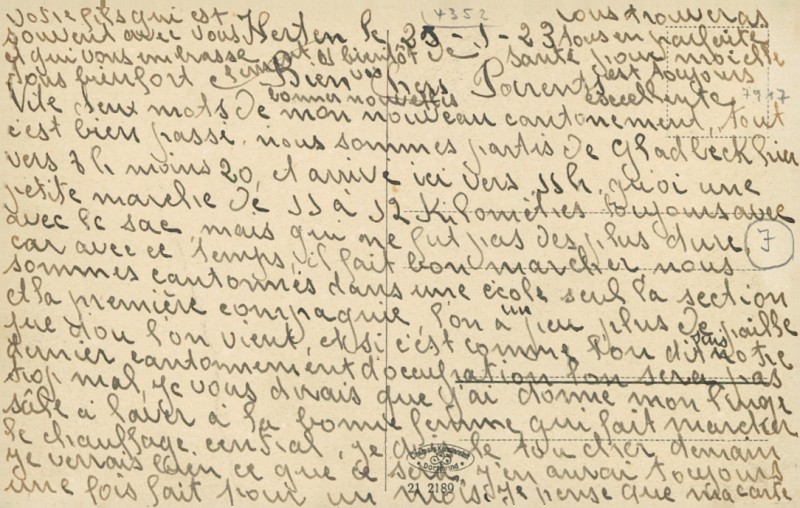 4352
Herten le 25-1-23
Bien chers Parents
Vite deux mots de mon nouveau cantonement, tout
c'est bien passé. nous sommes partis de Gladbeck hier
vers 7h moins 20, et arrivé ici vers 11h, quoi une
petite marche de 11 à 12 kilomètres toujours avec
avec le sac, mais qui ne fut pas des plus dure.
car avec ce temps, il fait bon marcher nous
sommes cantonnés dans une école seul la section
et la première compagnie, l'on a un peu plus de paille
que d'ou l'on vient, et si c'est comme l'on dit dans notre
dernier cantonnement d'occupation l'on sera pas
trop mal, je vous dirais que j'ai donné mon linge
sale à laver à la bonne femme qui fait marcher
le chauffage central, je le toucher demain
je verrais bien ce que ce sera, j'en aurai toujours
une fois fait pour un mois. Je pense que ma carte
vous trouveras
tous en parfaite
santé, pour moi elle
est toujours
excellente
votre fils qui est
souvent avec vous
et qui vous embrasse
tous bien fort
et bientôt de
vos
bonnes nouvelles
7
7917
Dortmund
21 2189